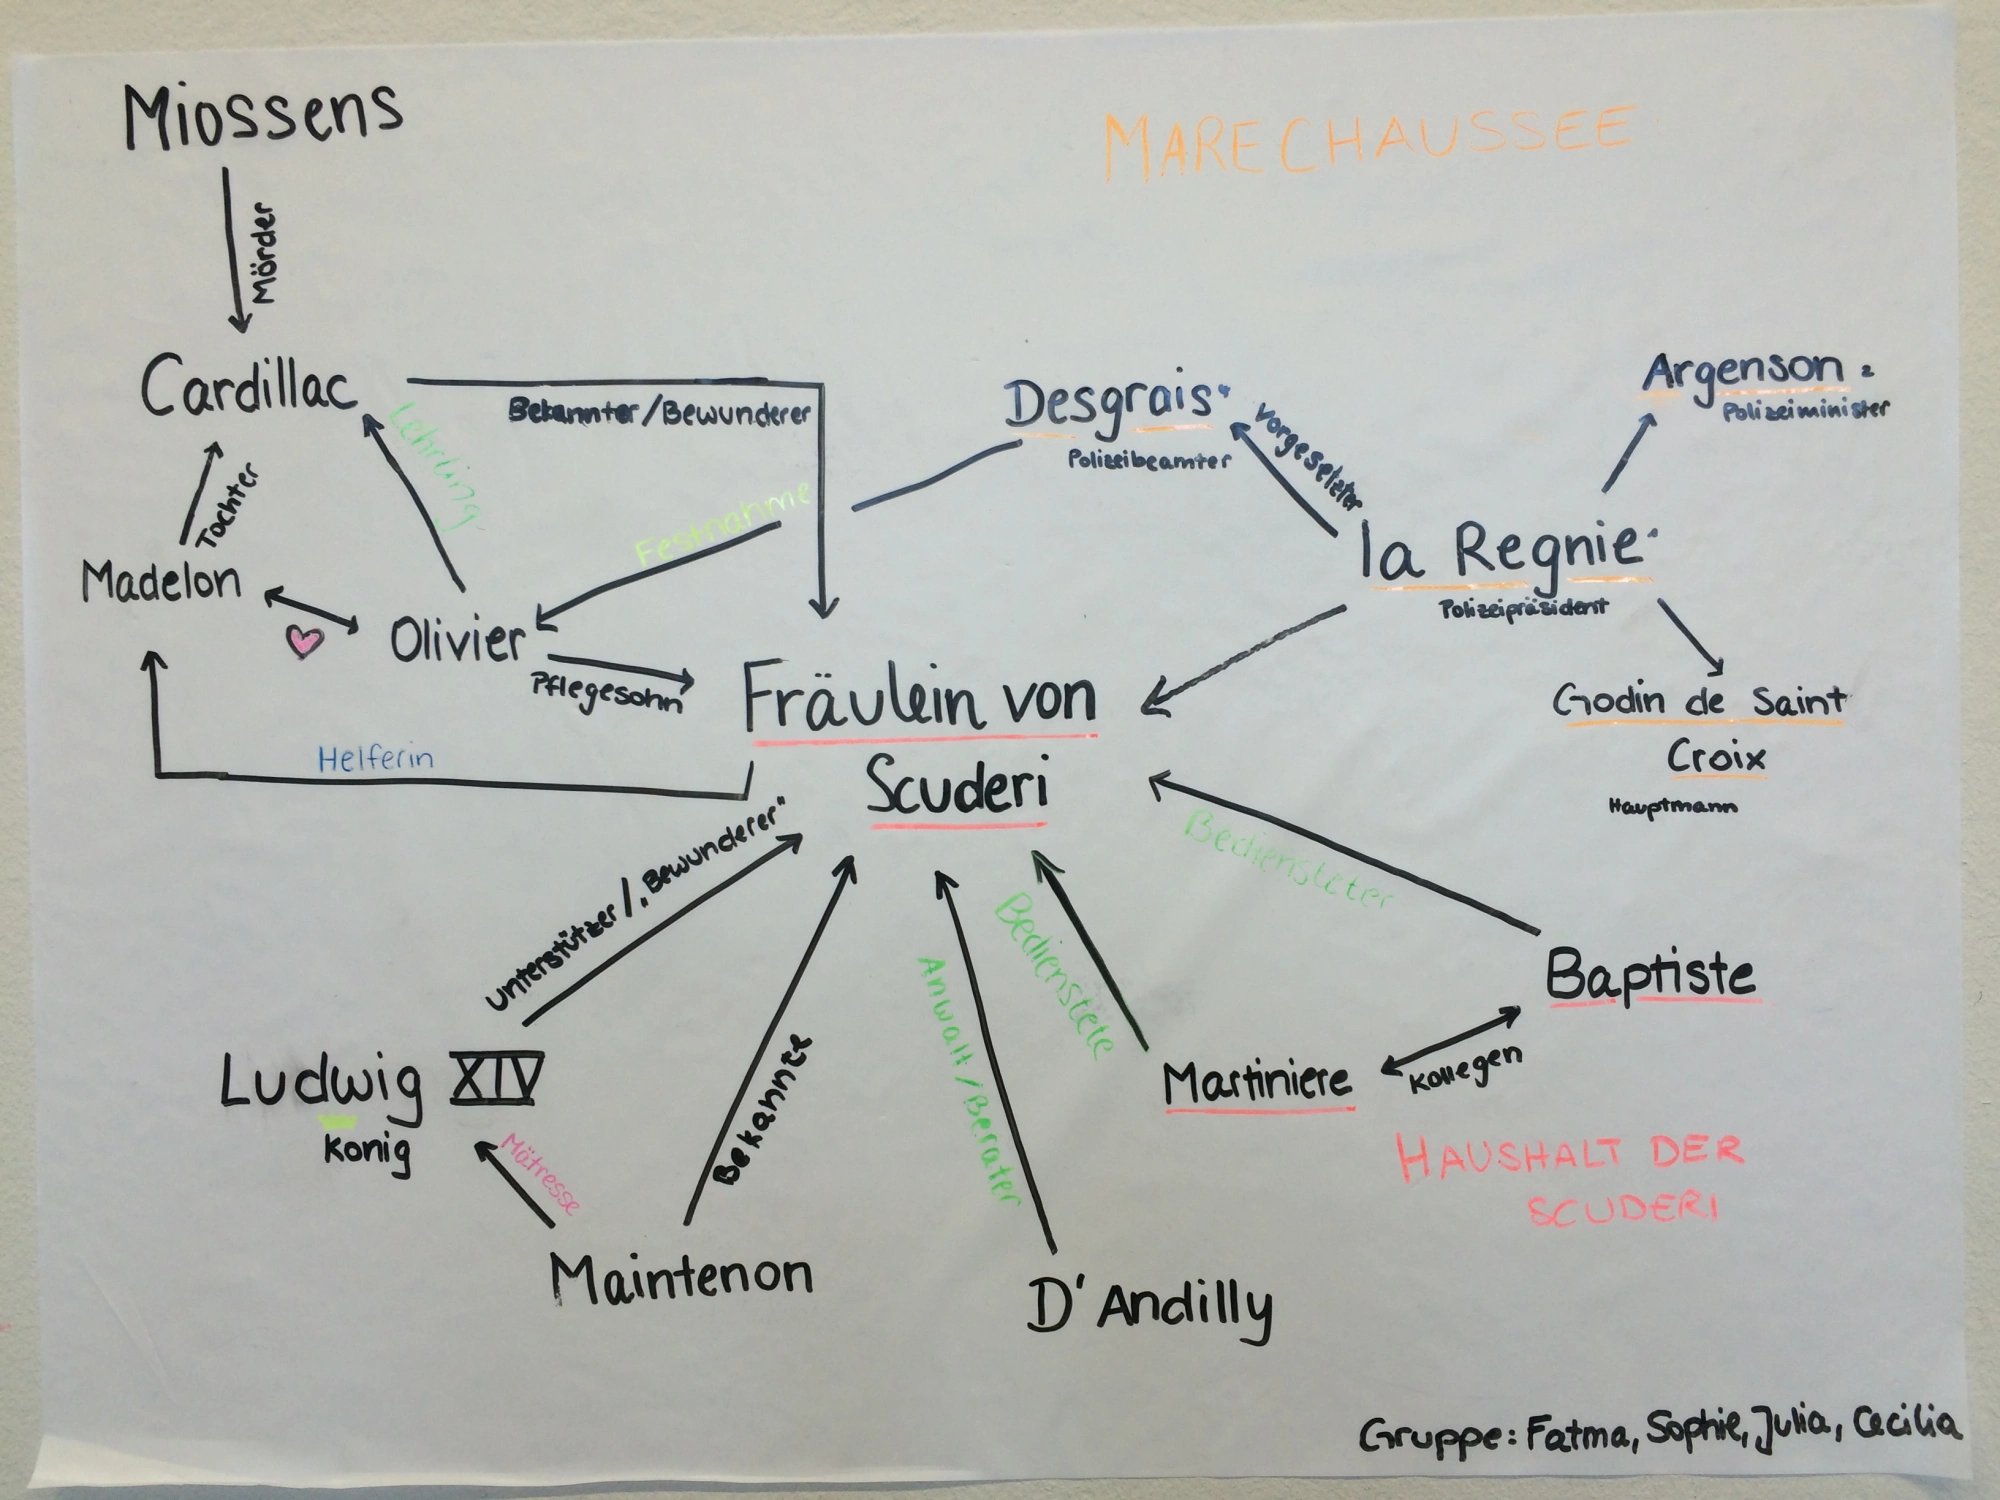 Miossens
MARECHAUSSEE
Mörder
Cardillac
Bekannter/Bewunderer
Lehrling
Desgrais
Polizeibeamter
Vorgesetzter
Argenson
Polizeiminister
Tochter
Festnahme
la Regnie
Polizeipräsident
Madelon
Olivier
Pflegesohn
Fräulein von
Scuderi
Godin de Saint
Croix
Hauptmann
Helferin
unterstützer/„Bewunderer"
Bediensteter
Bedienstete
Anwalt/Berater
Bekannte
Baptiste
Kollegen
Martiniere
Ludwig XIV
Konig
Mätresse
HAUSHALT DER
SCUDERI
Maintenon
D'Andilly
Gruppe: Fatma, Sophie, Julia, Cecilia